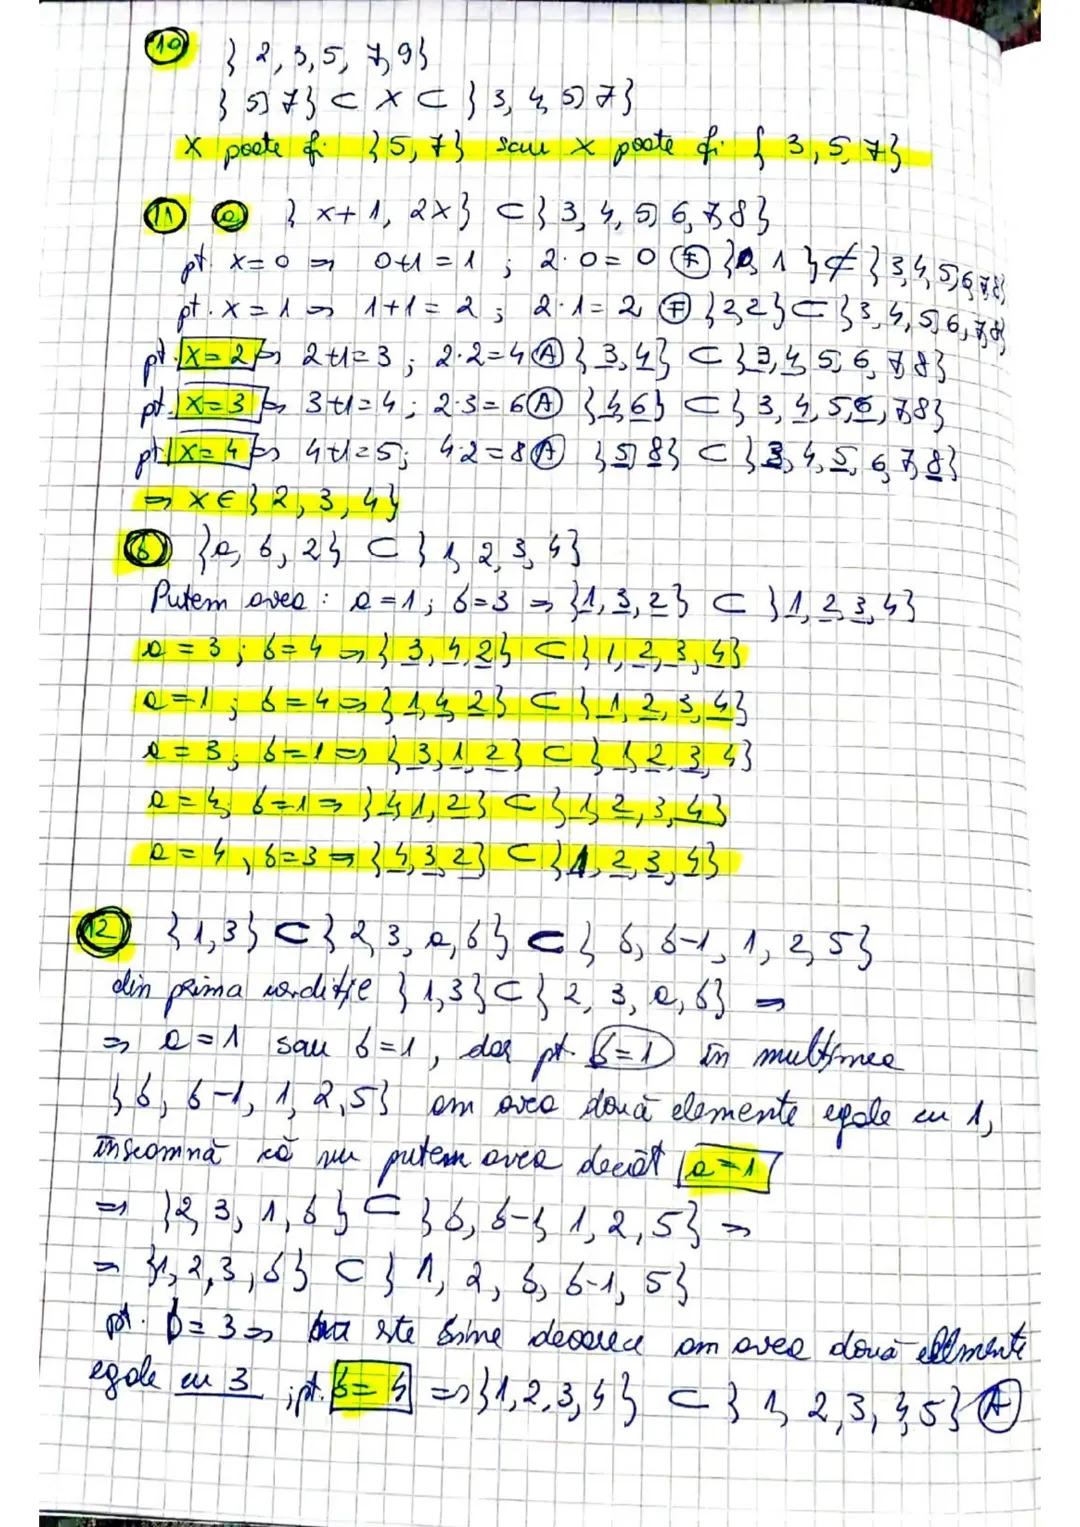 10 { 2, 3, 5, 7, 9}
{ 5, 7} ⊂ X ⊂ { 3, 4, 5, 7}
X poate fi {5, 7} sau X poate fi { 3, 5, 7}
11 a { x+1, 2x} ⊂ { 3, 4, 5, 6, 7, 8}
pt. x=0 ⇒ 0+1=1 ; 2·0=0 F {0, 1} ⊄ {3, 4, 5, 6, 7, 8}
pt. x=1 ⇒ 1+1=2 ; 2·1=2 F {2, 2} ⊂ {3, 4, 5, 6, 7, 8}
pt. x=2 ⇒ 2+1=3 ; 2·2=4 A {3, 4} ⊂ {3, 4, 5, 6, 7, 8}
pt. x=3 ⇒ 3+1=4 ; 2·3=6 A {4, 6} ⊂ {3, 4, 5, 6, 7, 8}
pt. x=4 ⇒ 4+1=5; 4·2=8 A {5, 8} ⊂ {3, 4, 5, 6, 7, 8}
⇒ x ∈ { 2, 3, 4}
b {a, b, 2} ⊂ { 1, 2, 3, 4}
Putem avea : a=1 ; b=3 ⇒ {1, 3, 2} ⊂ {1, 2, 3, 4}
a=3 ; b=4 ⇒ {3, 4, 2} ⊂ {1, 2, 3, 4}
a=1 ; b=4 ⇒ {1, 4, 2} ⊂ {1, 2, 3, 4}
a=3 ; b=1 ⇒ {3, 1, 2} ⊂ {1, 2, 3, 4}
a=4; b=1 ⇒ {4, 1, 2} ⊂ {1, 2, 3, 4}
a=4, b=3 ⇒ {4, 3, 2} ⊂ {1, 2, 3, 4}
12 {1, 3} ⊂ { 2, 3, a, b} ⊂ { b, b-1, 1, 2, 5}
din prima condiție {1, 3} ⊂ { 2, 3, a, b} ⇒
⇒ a=1 sau b=1, dar pt. b=1 în mulțimea
{b, b-1, 1, 2, 5} am avea două elemente egale cu 1,
înseamnă că nu putem avea decât a=1
⇒ {2, 3, 1, b} ⊂ {b, b-1, 1, 2, 5} ⇒
⇒ {1, 2, 3, b} ⊂ { 1, 2, b, b-1, 5}
pt. b=3 ⇒ nu este bine deoarece am avea două elemente
egale cu 3 ; pt. b=4 ⇒ {1, 2, 3, 4} ⊂ { 1, 2, 3, 4, 5} A